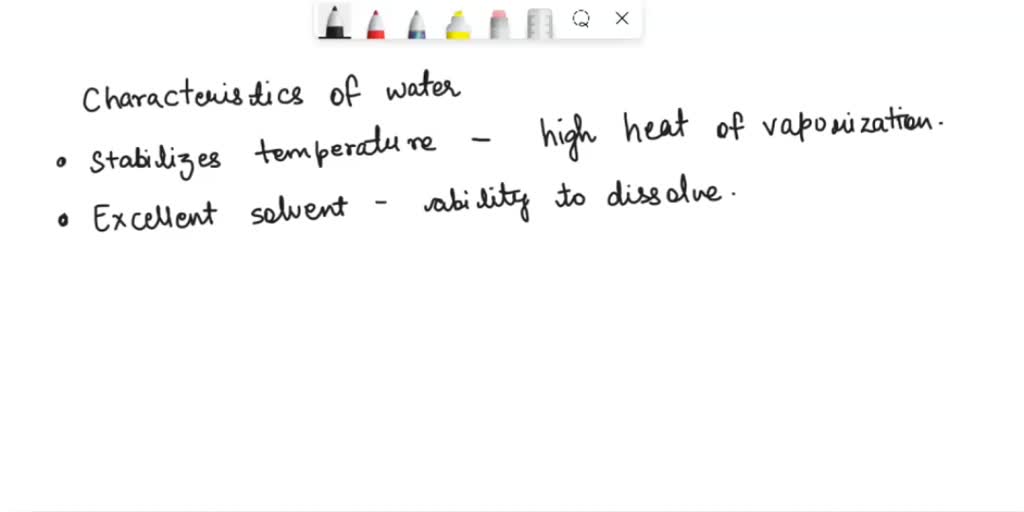 Characteristics of water
• Stabilizes temperature - high heat of vaporization.
• Excellent solvent - ability to dissolve.